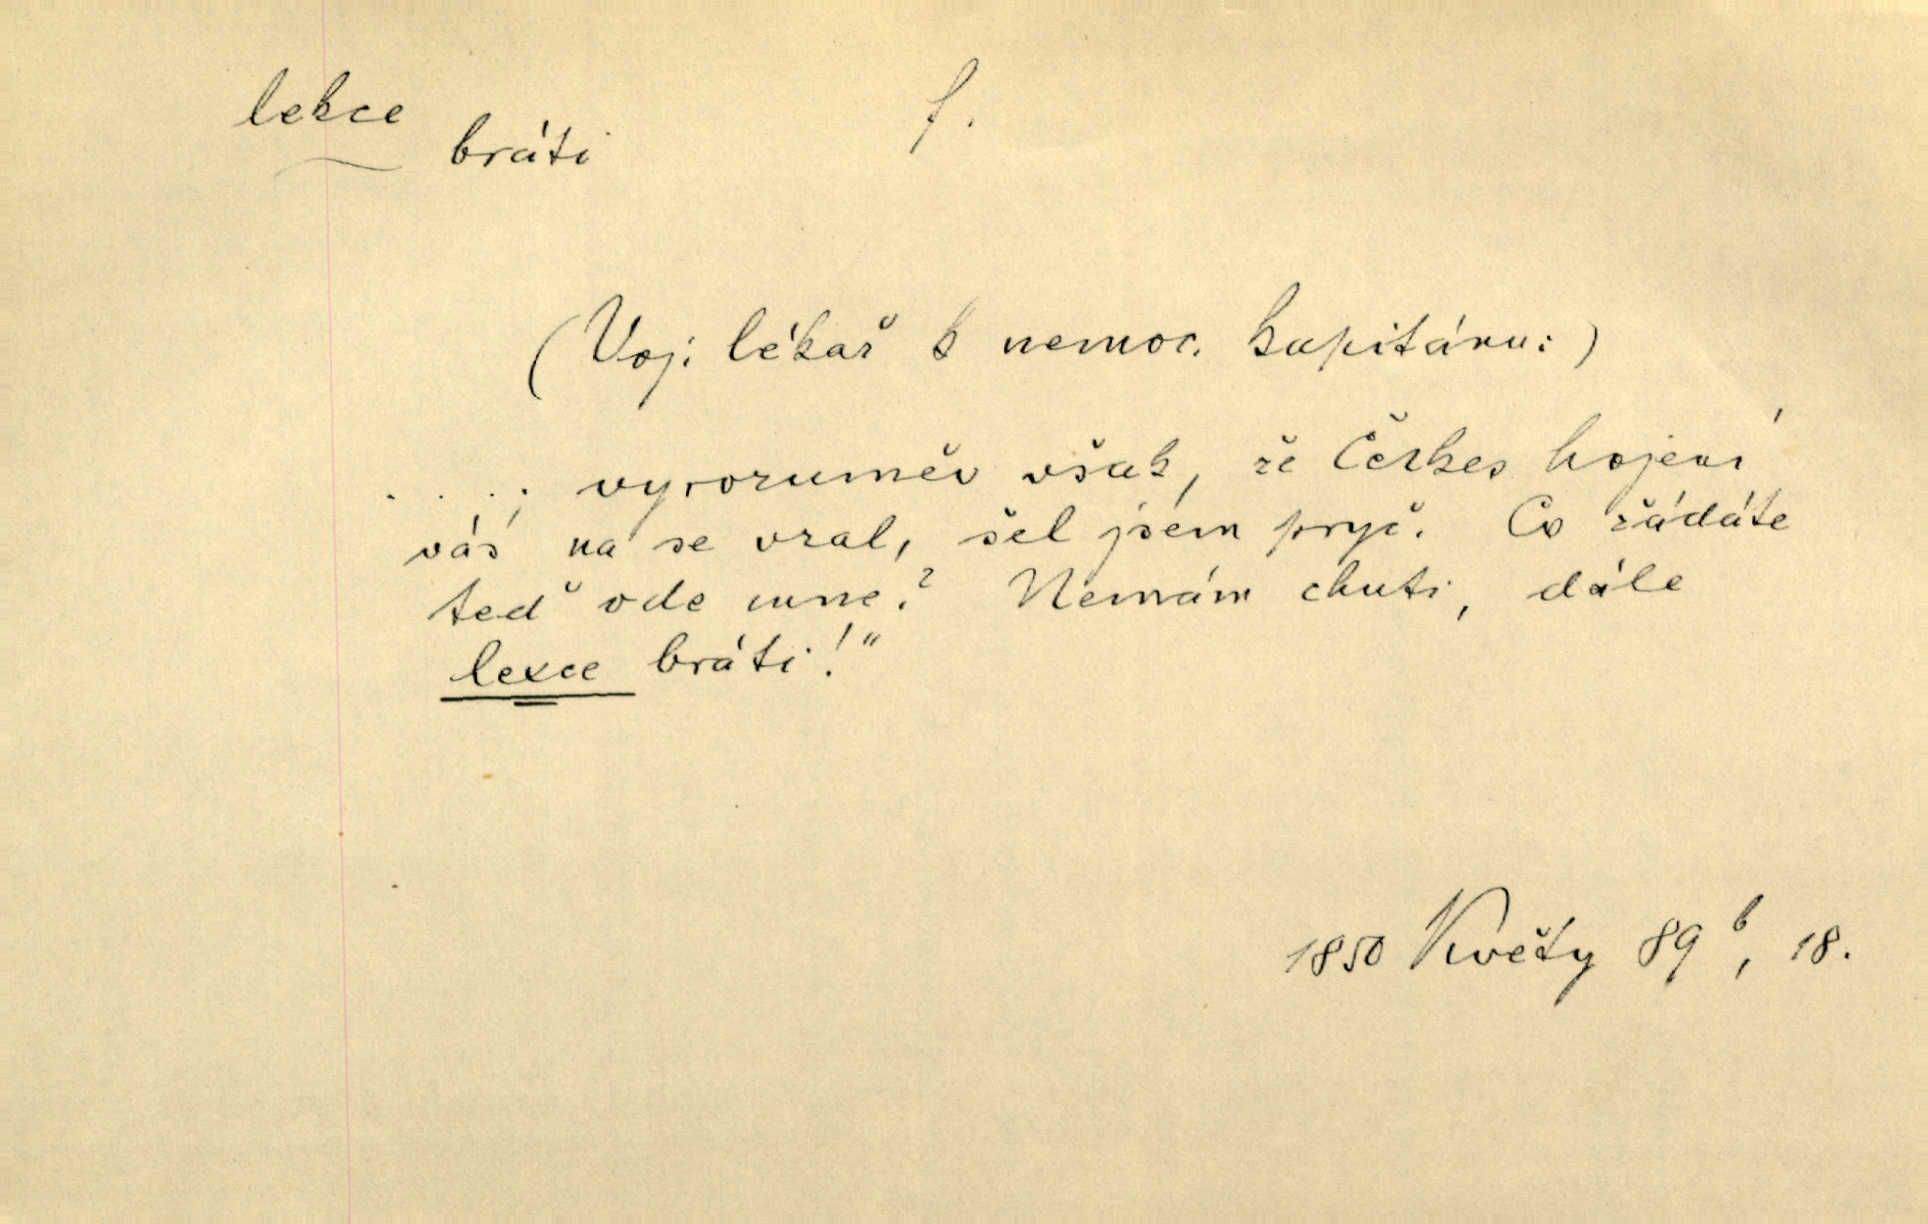 lekce f.
bráti
(Voj. lékař k nemoc. kapitánu:)
. . . . ; vyrozuměv však, že Čerkes hojení
váš na se vzal, šel jsem pryč. Co žádáte
teď ode mne? Nemám chuti, dále
lexce bráti!“
1850 Květy 89 b, 18.